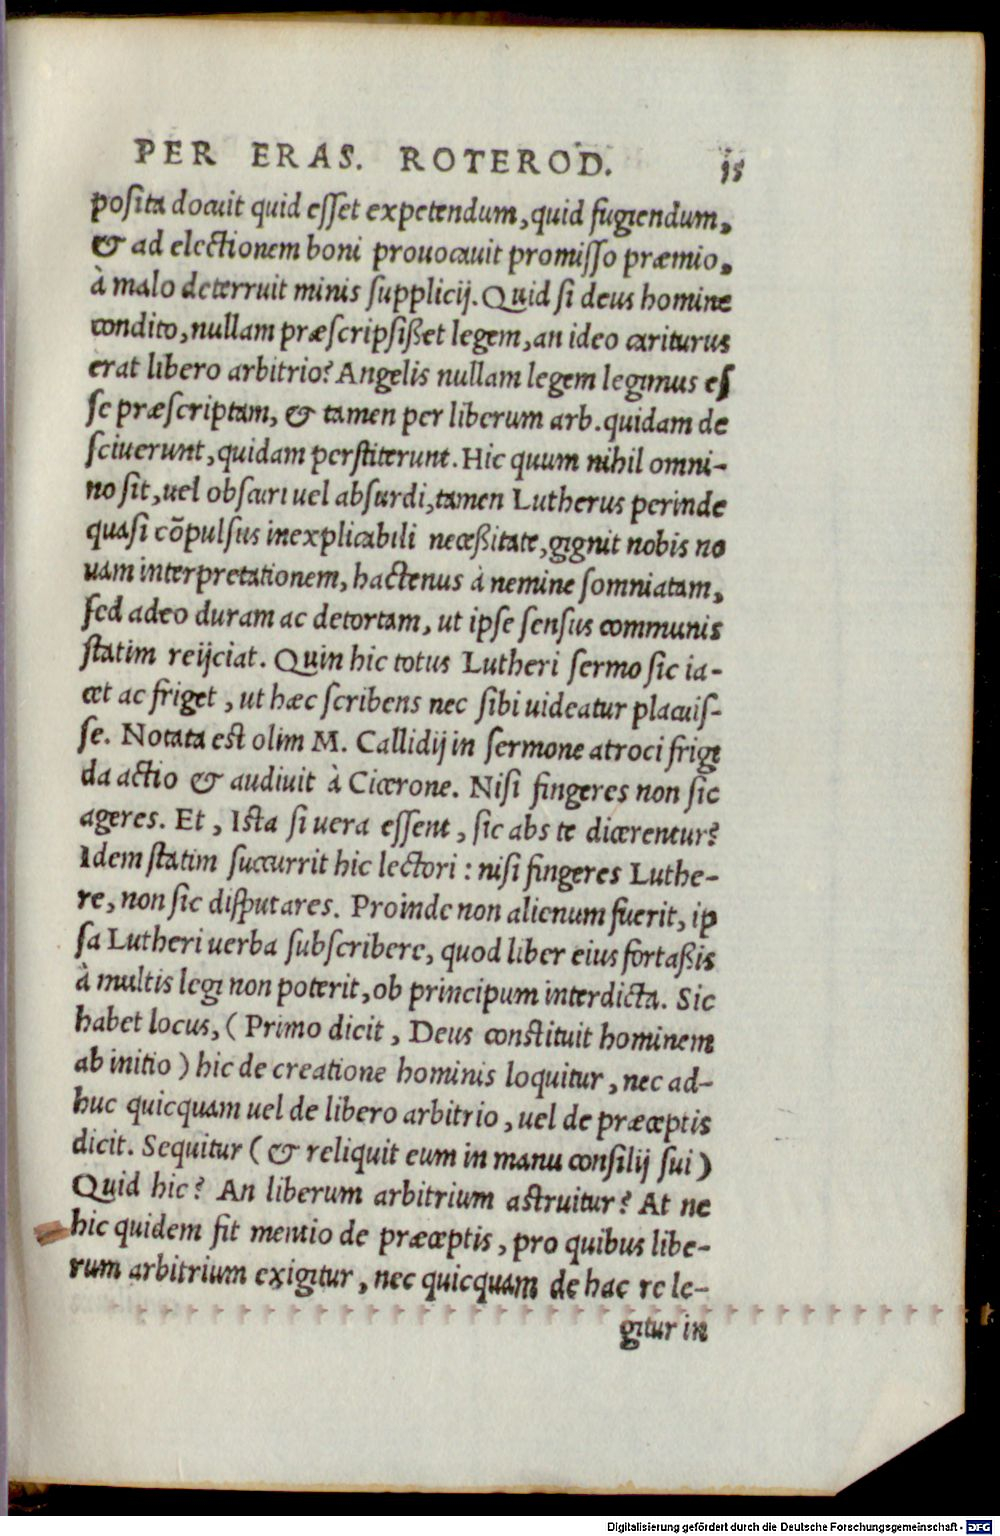 PER ERAS. ROTEROD. 15
posita docuit quid esset expetendum, quid fugiendum,
& ad electionem boni prouocauit promisso præmio,
à malo deterruit minis supplicij. Quid si deus homine
condito, nullam præscripsißet legem, an ideo cariturus
erat libero arbitrio? Angelis nullam legem legimus es
se præscriptam, & tamen per liberum arb. quidam de
sciuerunt, quidam perstiterunt. Hic quum nihil omni-
no sit, uel obscuri uel absurdi, tamen Lutherus perinde
quasi cõpulsus inexplicabili neceßitate, gignit nobis no
uam interpretationem, hactenus à nemine somniatam,
sed adeo duram ac detortam, ut ipse sensus communis
statim reijciat. Quin hic totus Lutheri sermo sic ia-
cet ac friget, ut hæc scribens nec sibi uideatur placuis-
se. Notata est olim M. Callidij in sermone atroci frigi
da actio & audiuit à Cicerone. Nisi fingeres non sic
ageres. Et, Ista si uera essent, sic abs te dicerentur?
Idem statim succurrit hic lectori: nisi fingeres Luthe-
re, non sic disputares. Proinde non alienum fuerit, ip
sa Lutheri uerba subscribere, quod liber eius fortaßis
à multis legi non poterit, ob principum interdicta. Sic
habet locus, (Primo dicit, Deus constituit hominem
ab initio) hic de creatione hominis loquitur, nec ad-
huc quicquam uel de libero arbitrio, uel de præceptis
dicit. Sequitur (& reliquit eum in manu consilij sui)
Quid hic? An liberum arbitrium astruitur? At ne
hic quidem fit mentio de præceptis, pro quibus libe-
rum arbitrium exigitur, nec quicquam de hac re le-
gitur in
Digitalisierung gefördert durch die Deutsche Forschungsgemeinschaft - DFG